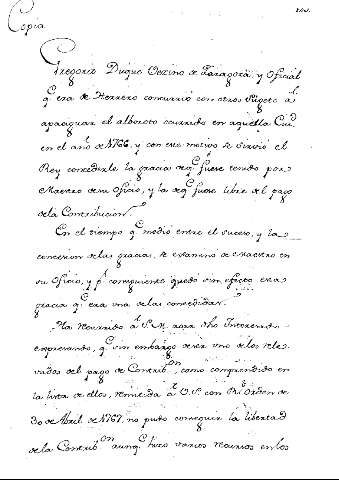 Copia
Gregorio Duque Vezino de Zaragoza, y Oficial
q.e era de Herrero concurrió con otros Sugetos á
apaciguar el alboroto ocurrido en aquella Ciu.d
en el añ.o de 1766, y con este motivo se sirvió el
Rey concederle la gracia de q.e fuese tenido por
Maestro de su Oficio, y la de q.e fuese libre del pago
de la Contribucion.
En el tiempo q.e medió entre el suceso, y la
concesion de las gracias, se examinó de Maestro en
su Oficio, y p.r consiguiente quedó sin efecto esta
gracia q.e era una de las concedidas.
Ha recurrido á S.M. aora dho Interesado
expresando, q.e sin embargo de ser uno de los rele-
vados del pago de Contrib.on, como comprendido en
la lista de ellos, remitida á V.S. con R.l Orden de
30 de Abril de 1767, no pudo conseguir la libertad
de la Contrib.on aunq.e hizo varios recursos en los